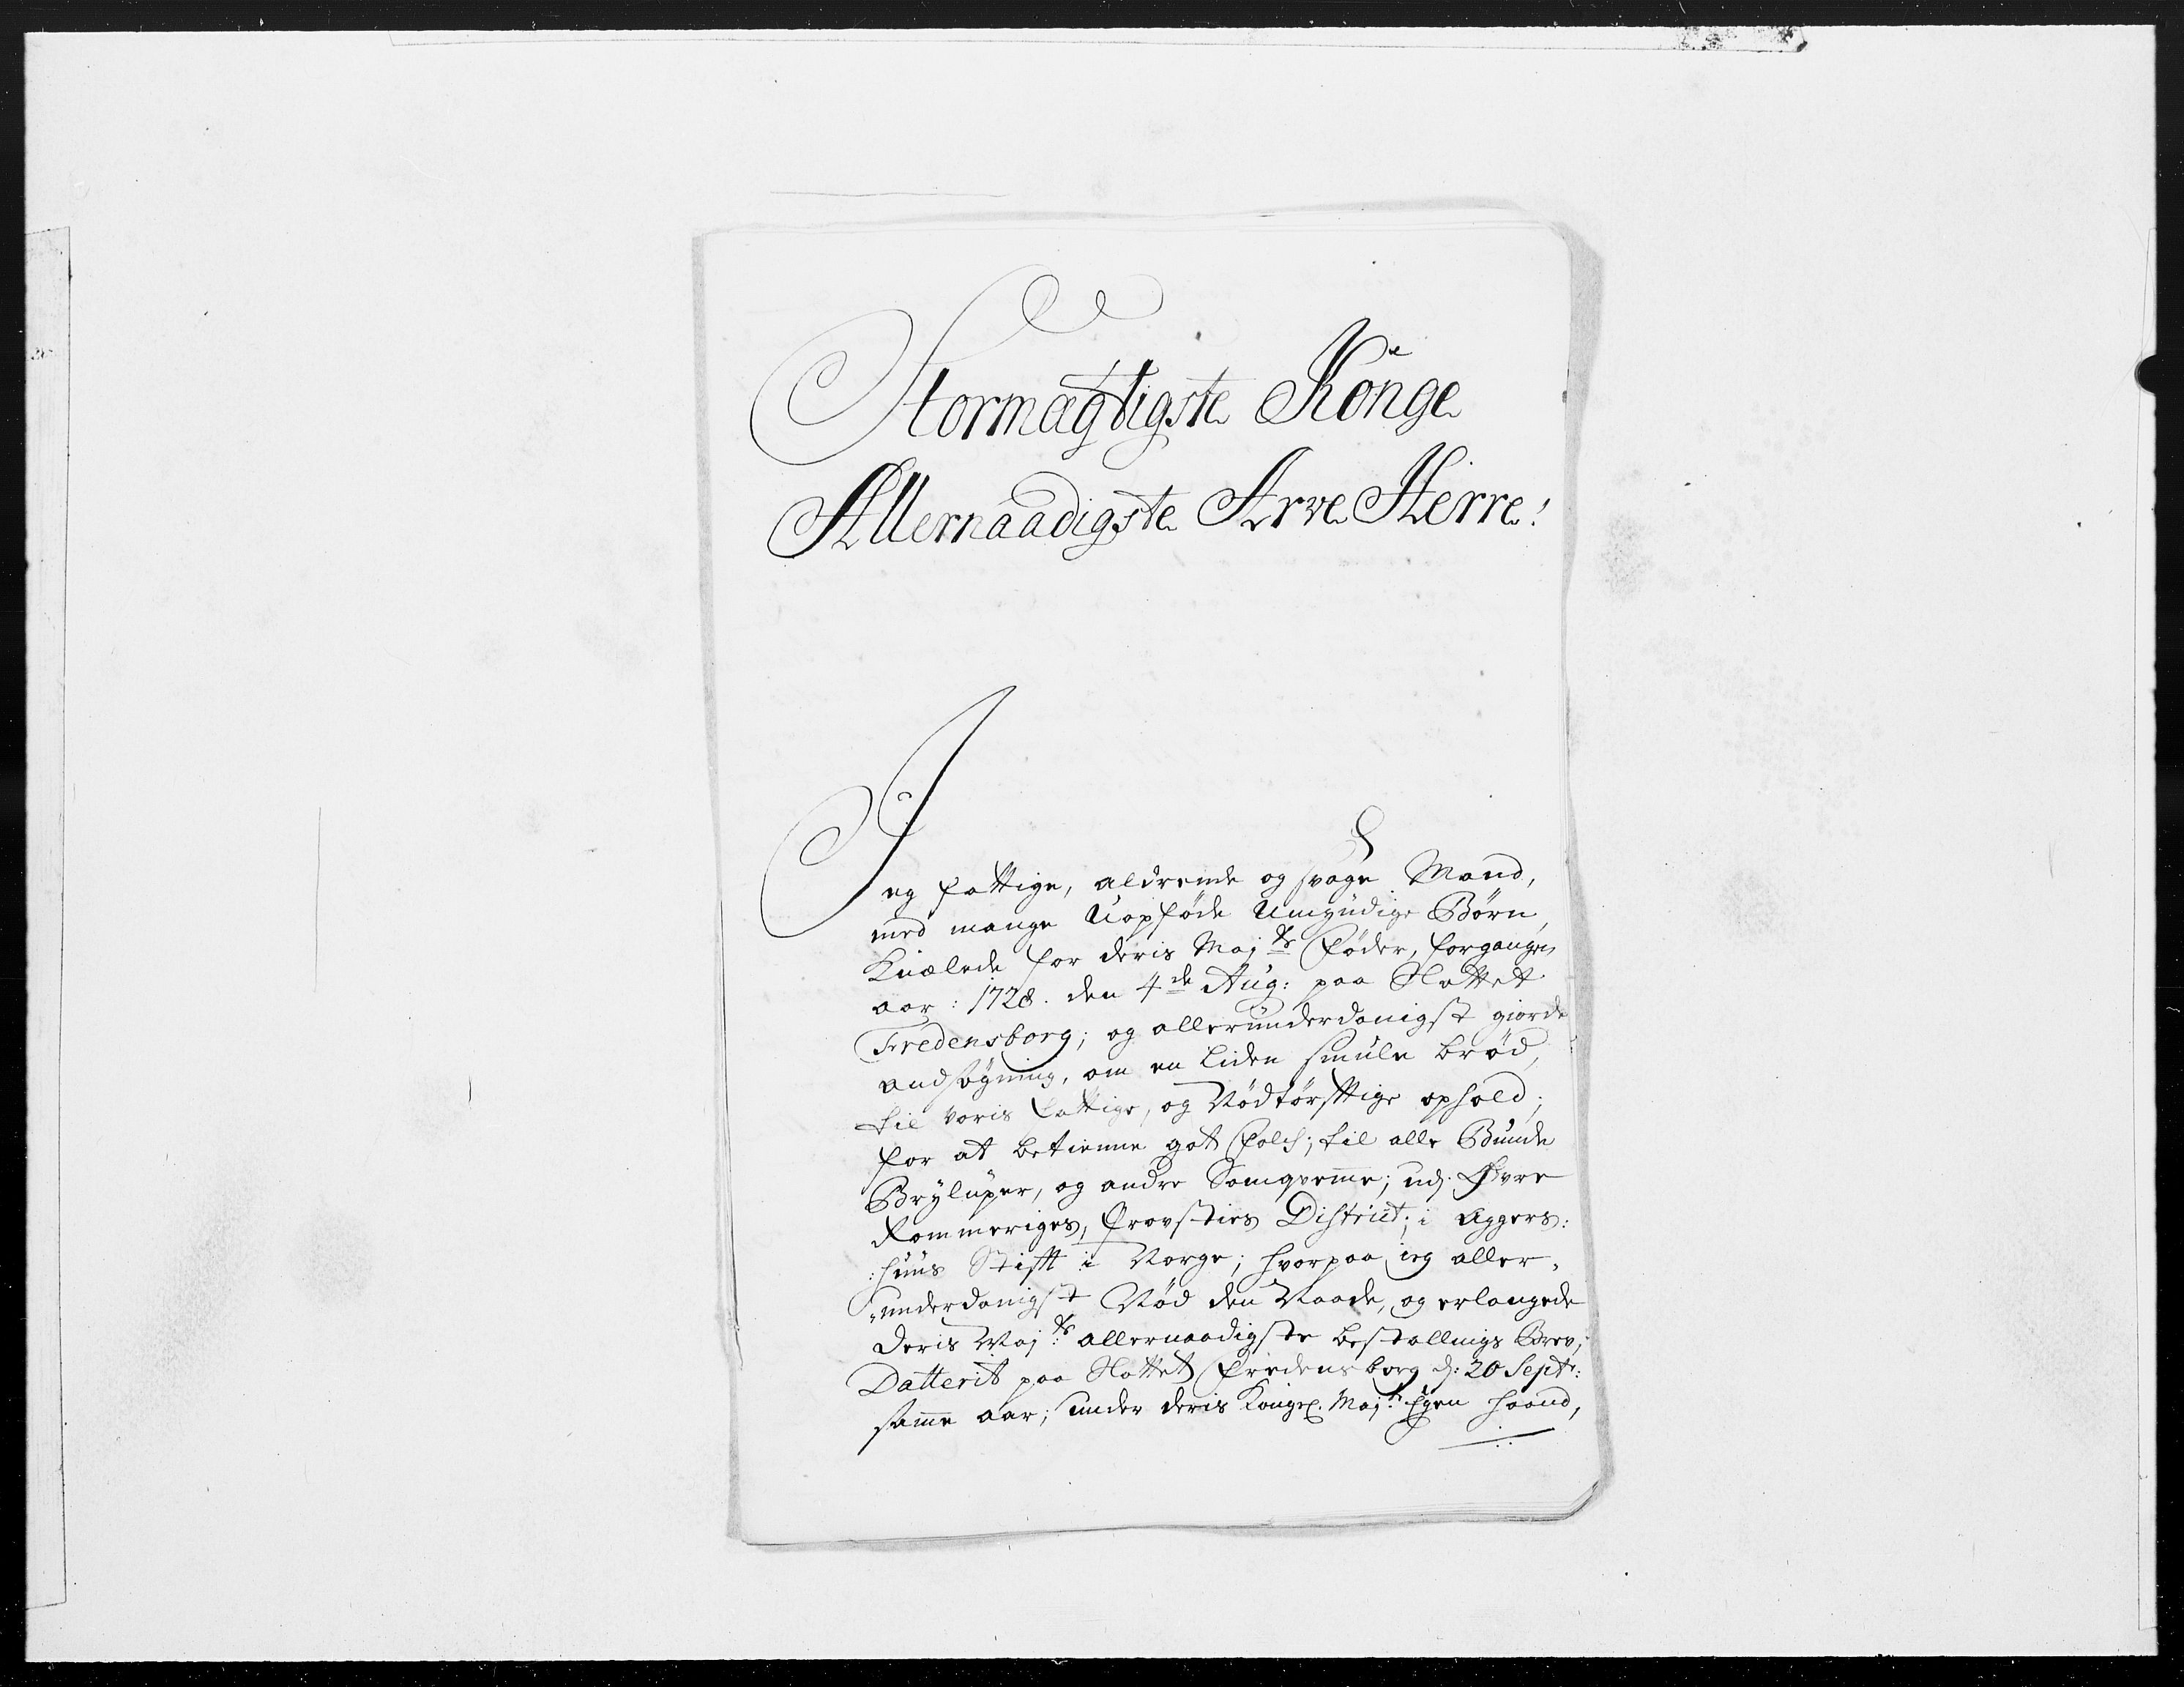 Stormægtigste Konge
Allernaadigste Arve Herre!
Jeg fattige, aldrende og svage Mand,
med mange Uopføde Umyndige Børn,
Knælede for deris Maj:ts Føder, forgangen
aar: 1728. den 4de Aug: paa Slottet
Fredensborg; og allerunderdanigst giorde
andsøgning, om en liden smule brød,
til voris fattige, og Nødtørfftige ophold;
for at betienne got Folch; til alle Bunde
Brylüper, og andre Samqveme; udj Øvre
Rommeriges, Provsties District; i Aggers:
:huus Stifft i Norge; hvorpaa ieg aller„
„underdanigst Nød den Naade, og erlangede
Deris Maj:ts allernaadigste bestallings Brev;
Datterit paa Slottet Fredensborg d: 20 Septr:
same aar; under deris Kongel. Maj:ts Egen haand,